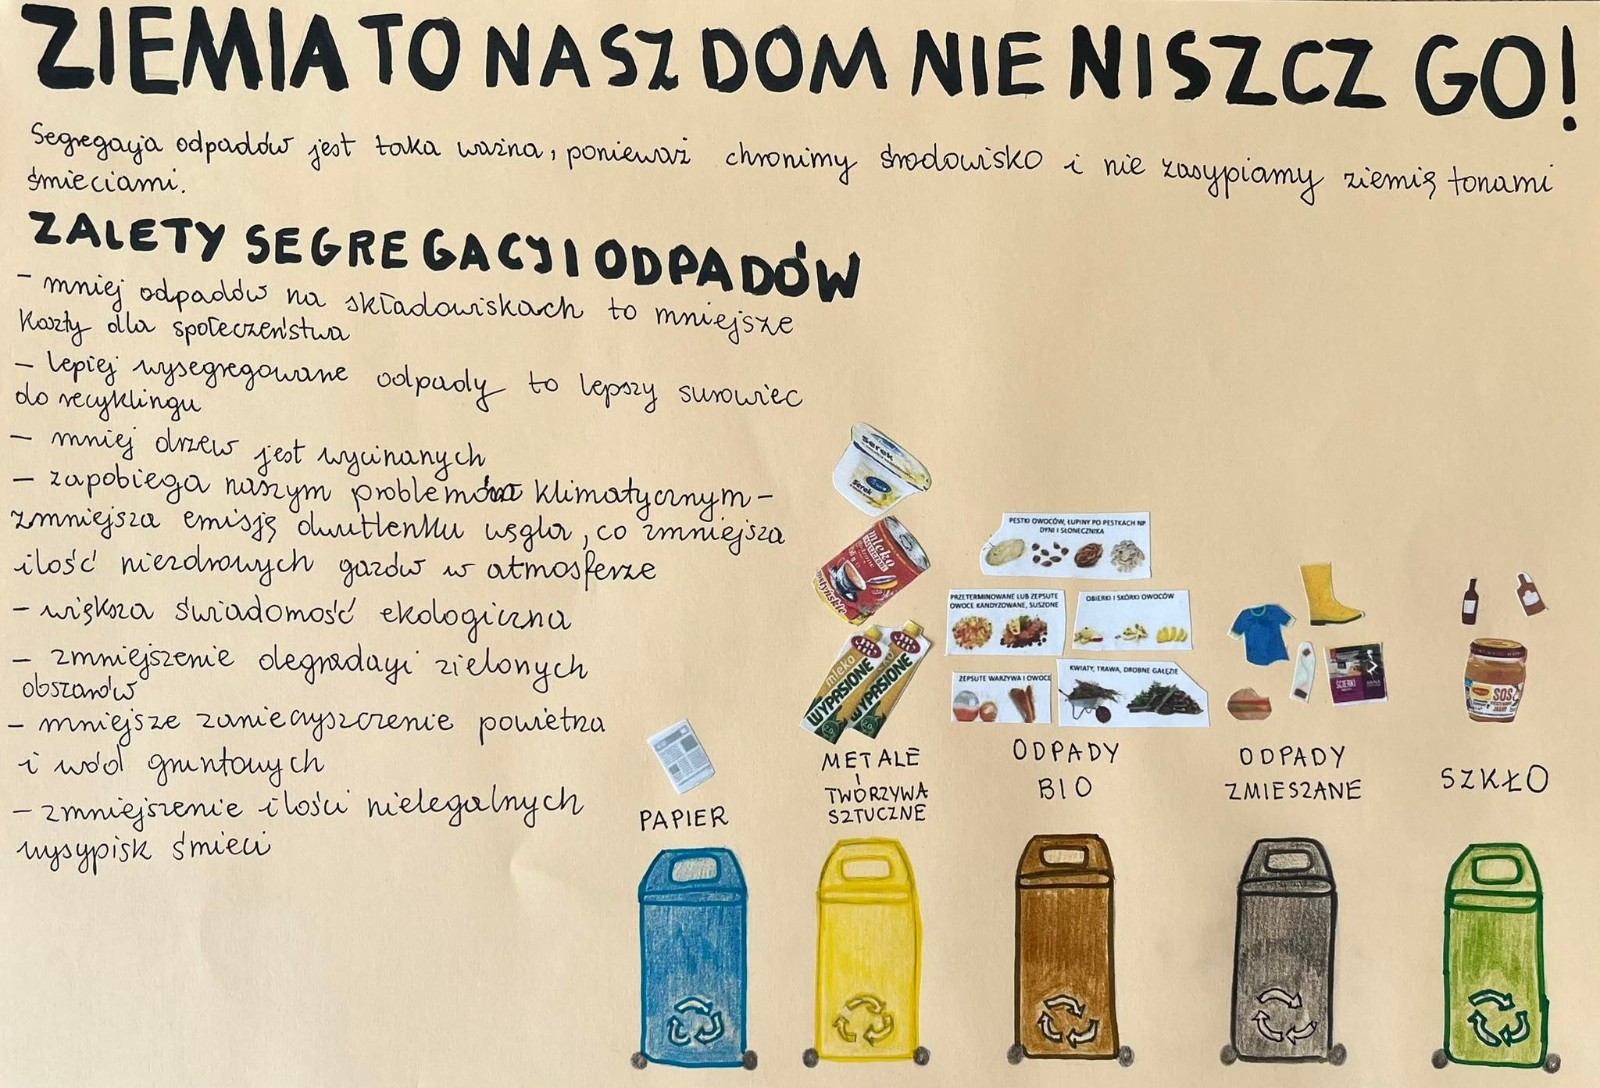 ZIEMIA TO NASZ DOM NIE NISZCZ GO!
Segregacja odpadów jest taka ważna, ponieważ chronimy środowisko i nie zasypiamy ziemię tonami
śmieciami.
ZALETY SEGREGACJI ODPADÓW
- mniej odpadów na składowiskach to mniejsze
Koszty dla społeczeństwa
- lepiej wysegregowane odpady to lepszy surowiec
do recyklingu
- mniej drzew jest wycinanych
- zapobiega naszym problemów klimatycznym -
zmniejsza emisję dwutlenku węgla, co zmniejsza
ilość niezdrowych gazów w atmosferze
- większa świadomość ekologiczna
- zmniejszenie degradacji zielonych
obszarów
- mniejsze zanieczyszczenie powietrza
i wód gruntowych
- zmniejszenie ilości nielegalnych
wysypisk śmieci
serek
serek
mleko
mleko
WYPASIONE
WYPASIONE
PESTKI OWOCÓW, ŁUPINY PO PESTKACH NP
DYNI I SŁONECZNIKA
PRZETERMINOWANE LUB ZEPSUTE
OWOCE KANDYZOWANE, SUSZONE
OBIERKI I SKÓRKI OWOCÓW
ZEPSUTE WARZYWA I OWOCE
KWIATY, TRAWA, DROBNE GAŁĘZIE
ŚCIERKI
SOS
PAPIER
METALE
I
TWORZYWA
SZTUCZNE
ODPADY
BIO
ODPADY
ZMIESZANE
SZKŁO